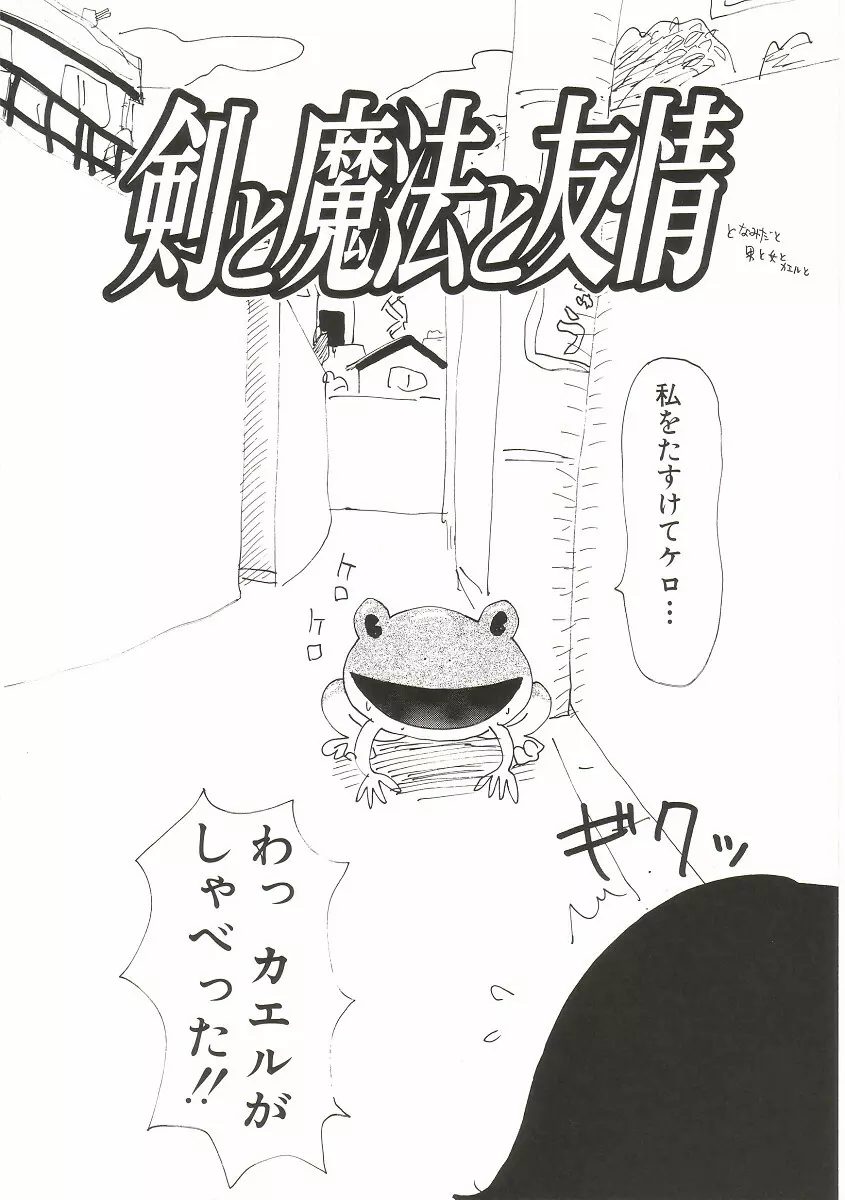 剣と魔法と友情
となみだと
男と女と
カエルと
私をたすけてケロ…
ケロ
ケロ
ギクッ
わっ カエルが
しゃべった!!